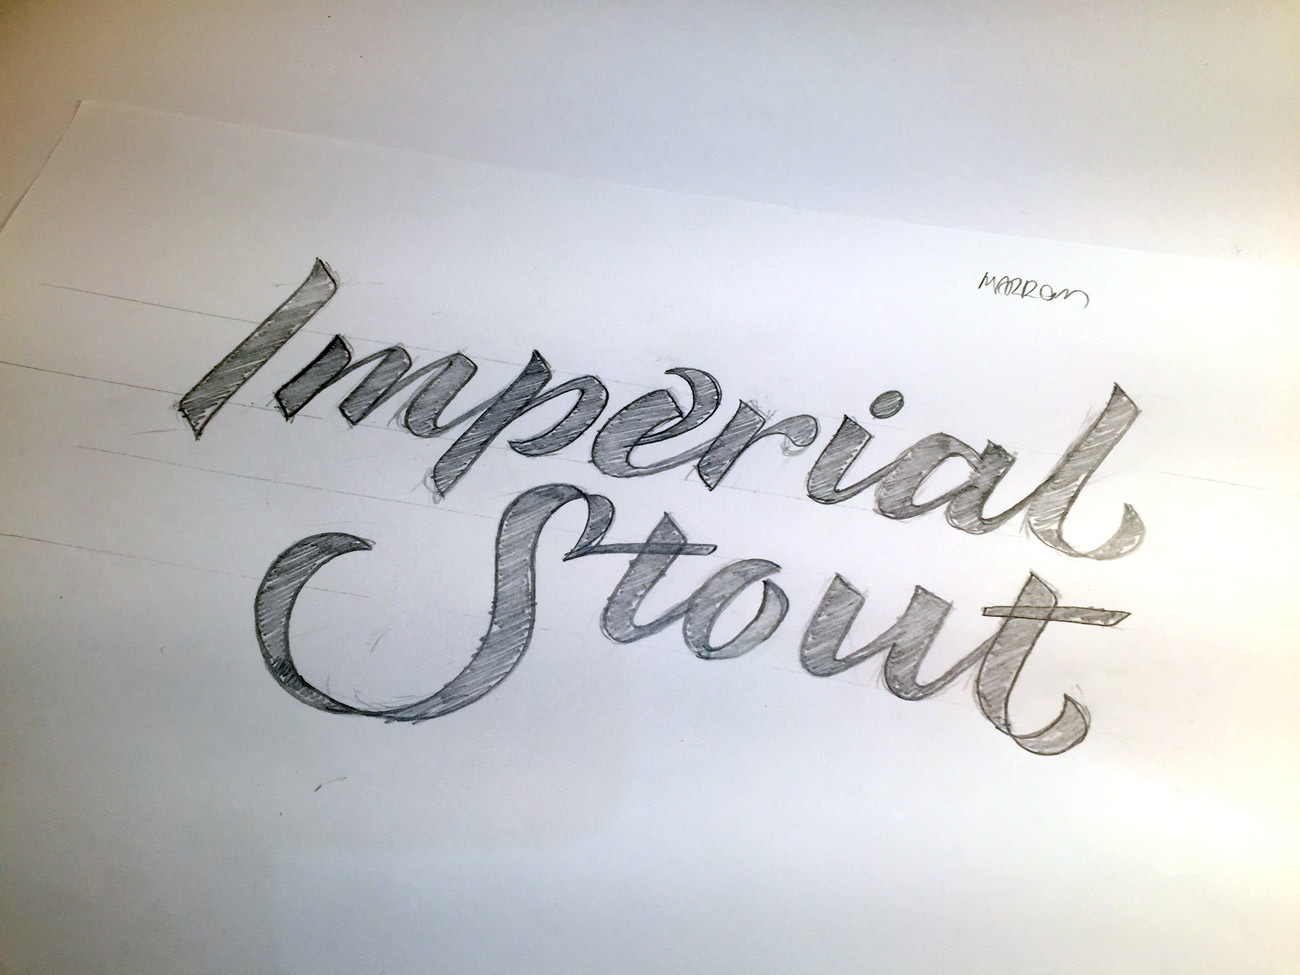 MARROM
Imperial
Stout